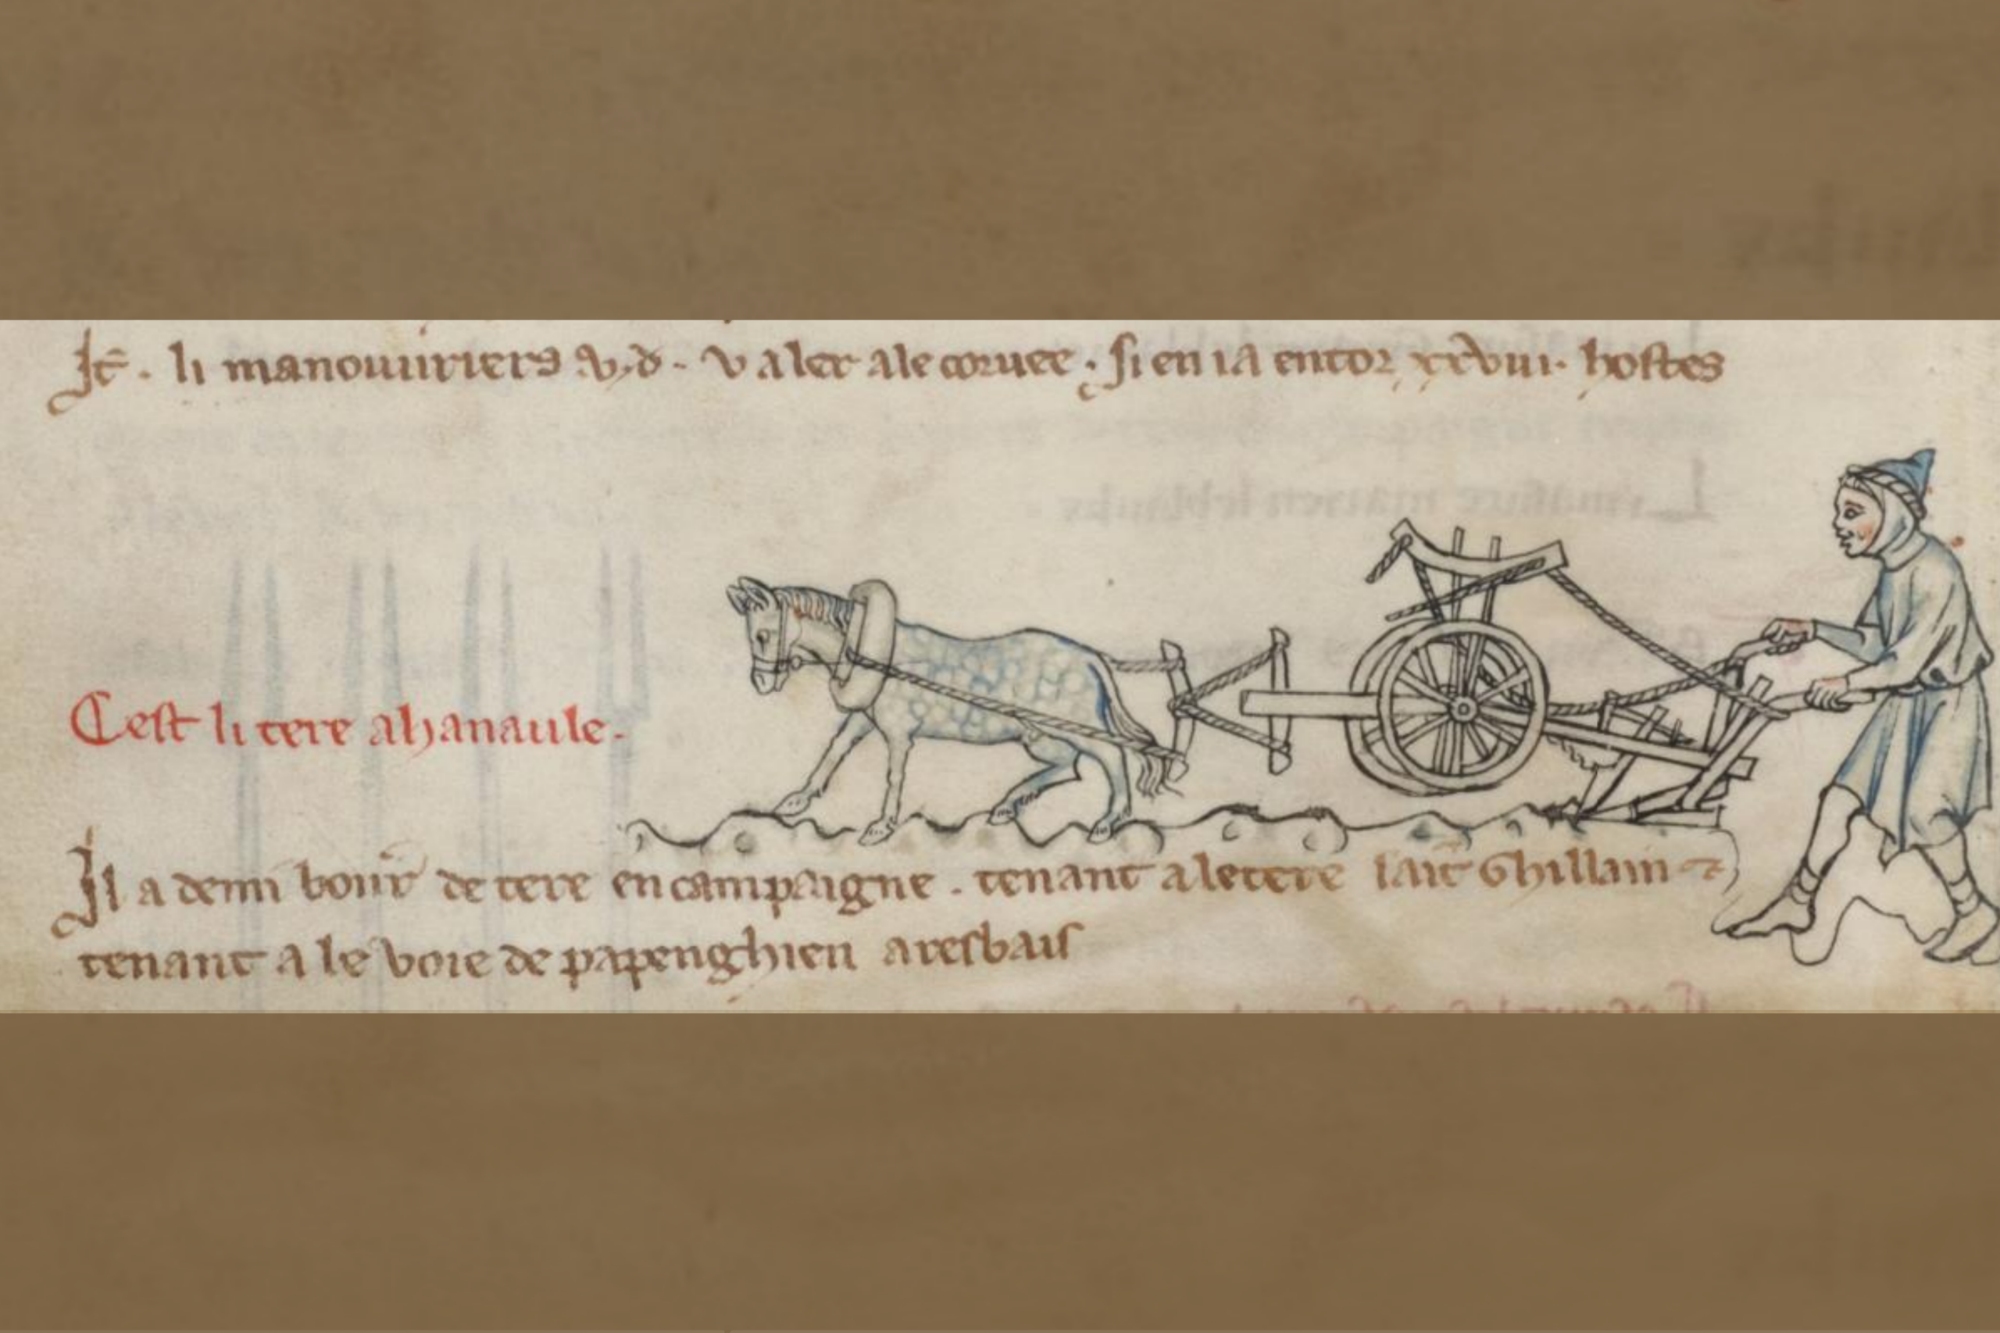 It̄. li manouuriers .v.d. v aler ale coruee. si en i a entor xxviii. hostes
Cest li tere ahanaule.
Il a demi bonir de tere encampaigne. tenant aletere saīt Ghillain ⁊
tenant a le voie de papenghien aresbais